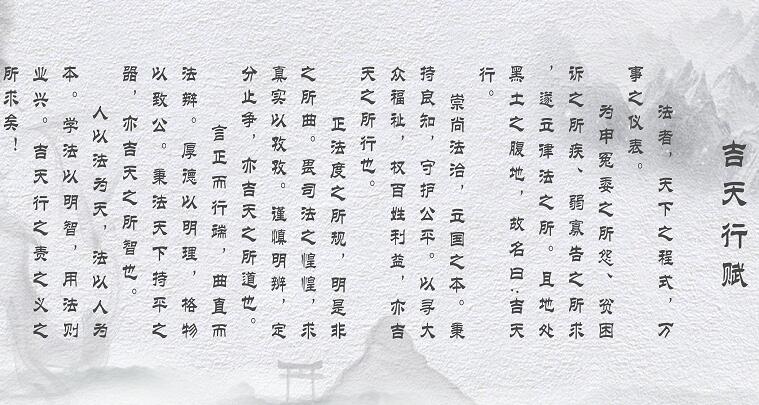 吉天行赋
法者，天下之程式，万
事之仪表。
为申冤委之所怨、贫困
诉之所疾、弱寡告之所求
，遂立律法之所。且地处
黑土之腹地，故名曰：吉天
行。
崇尚法治，立国之本。秉
持良知，守护公平。以寻大
众福祉，权百姓利益，亦吉
天之所行也。
正法度之所规，明是非
之所曲。畏司法之惶惶，求
真实以孜孜。谨慎明辨，定
分止争，亦吉天之所道也。
言正而行端，曲直而
法辩。厚德以明理，格物
以致公。秉法天下持平之
器，亦吉天之所智也。
人以法为天，法以人为
本。学法以明智，用法则
业兴。吉天行之责之义之
所求矣！